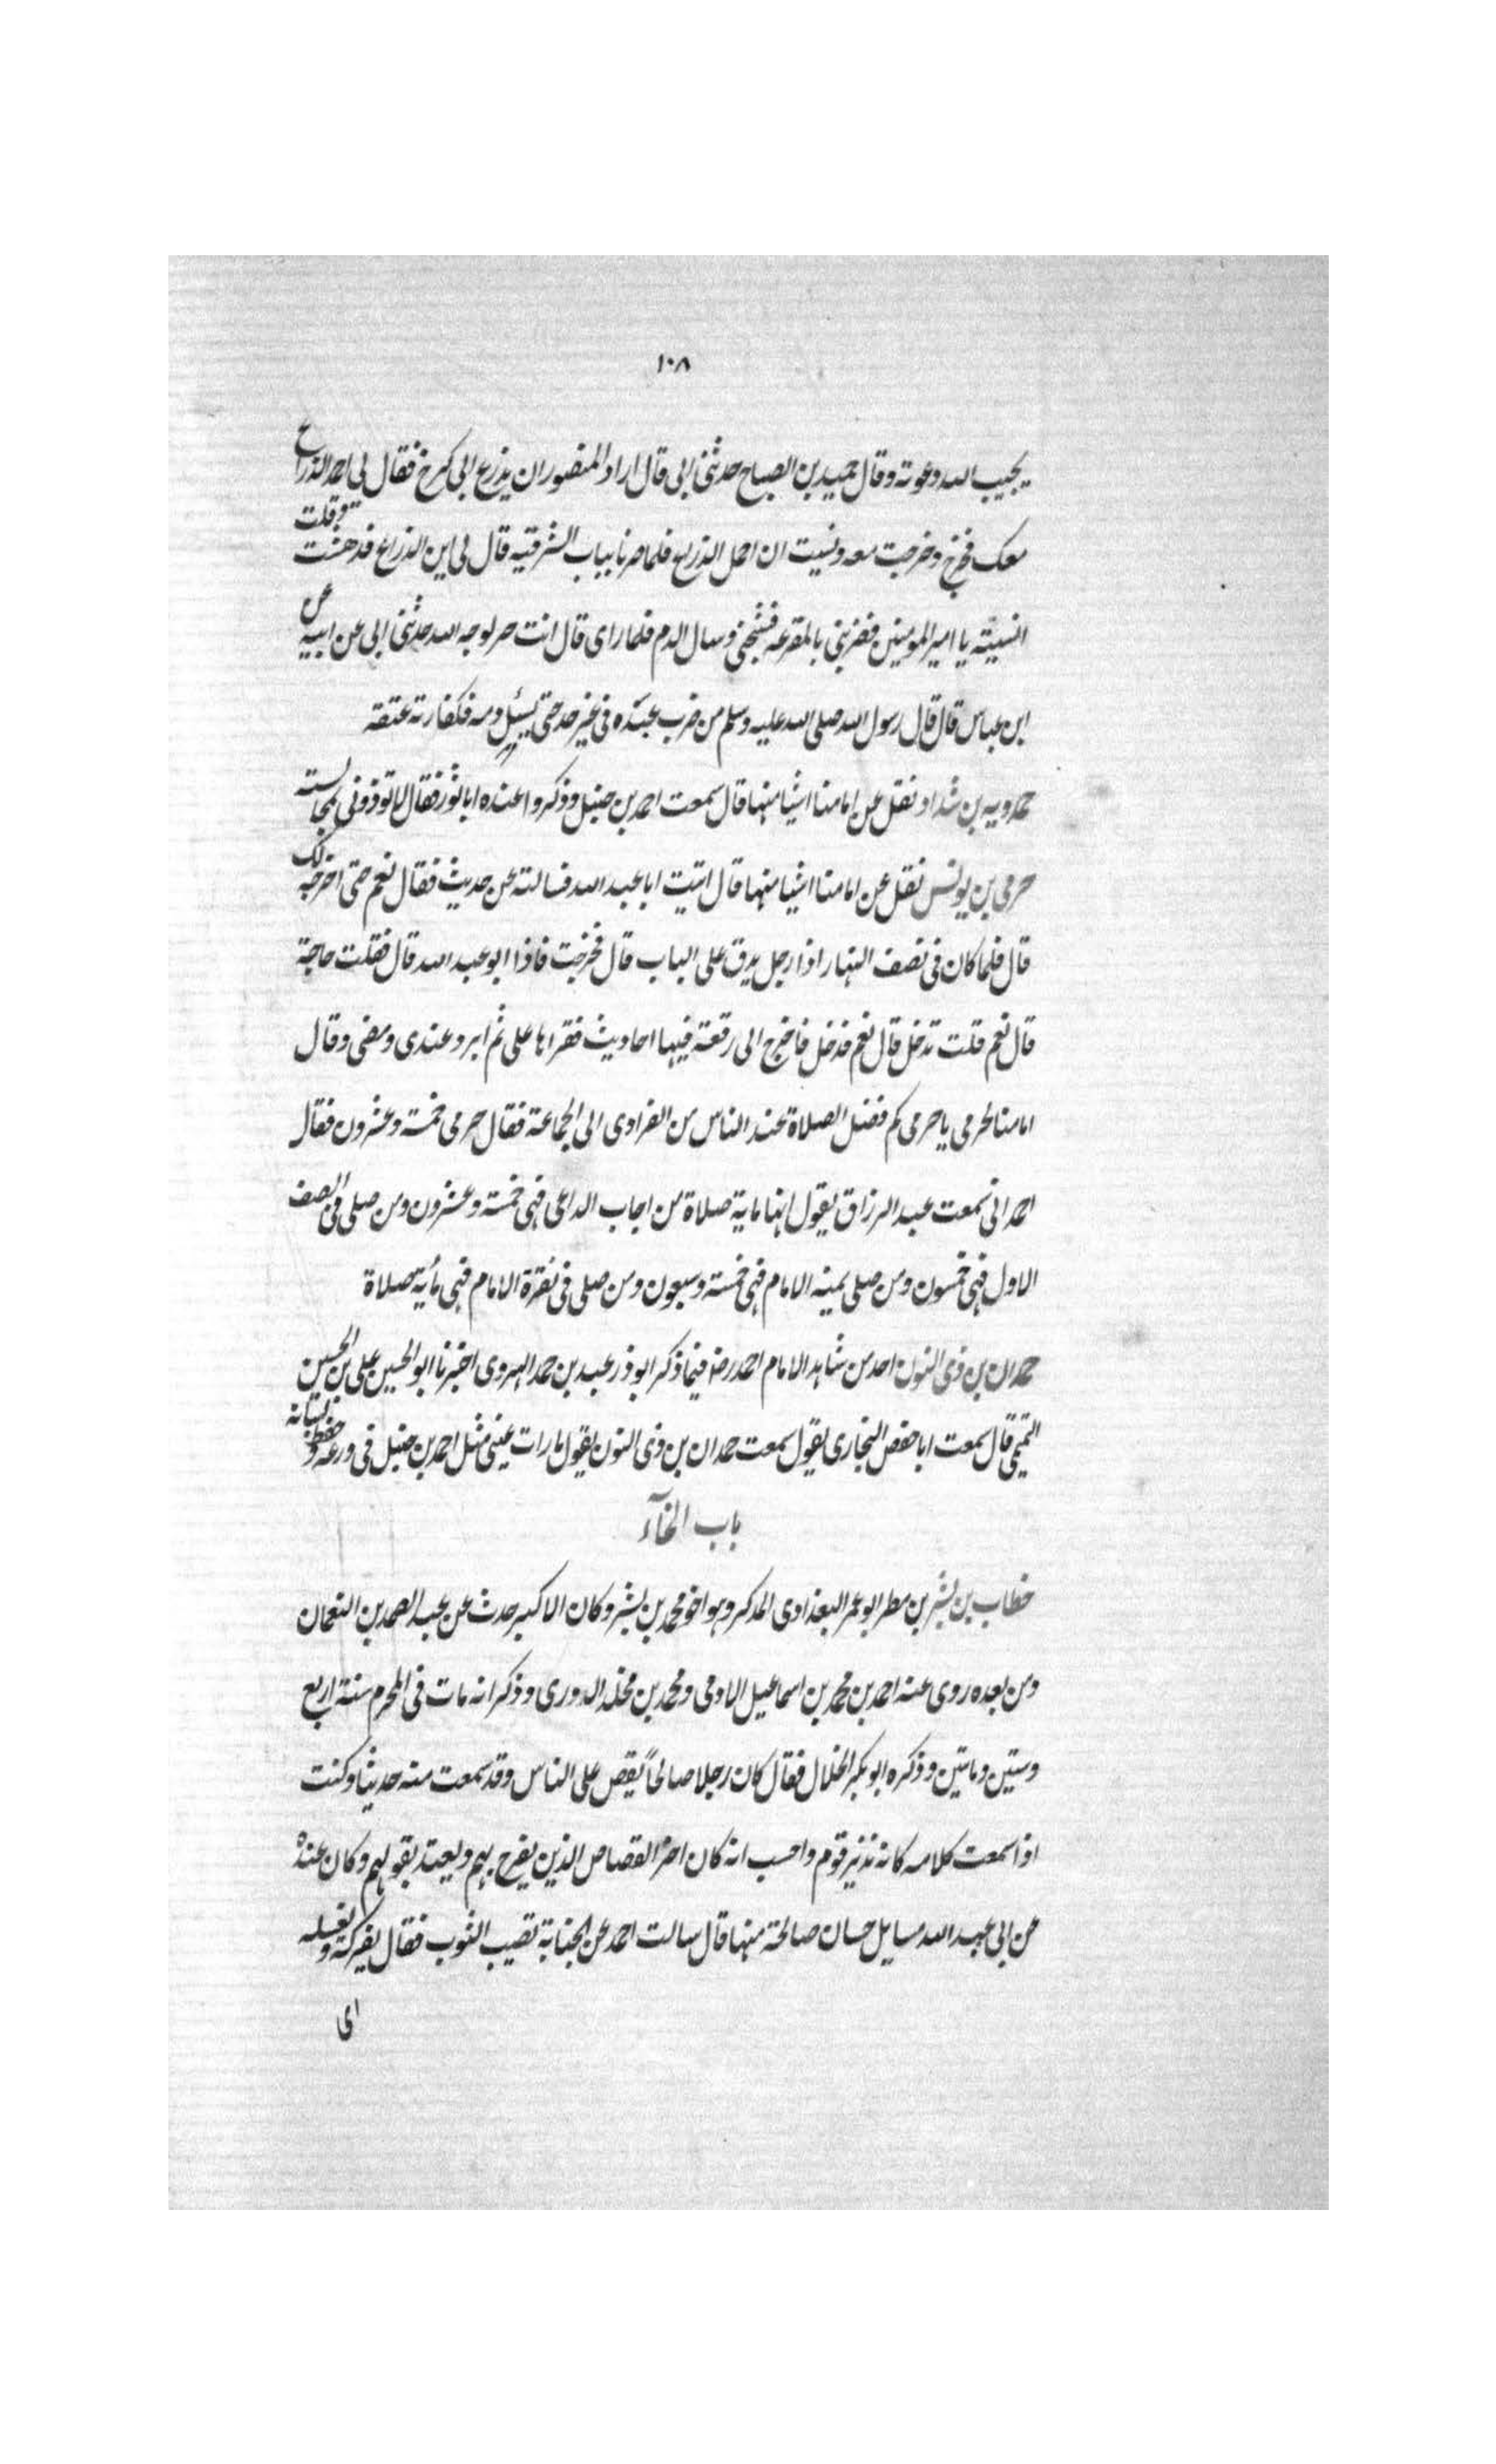 ١٠٨
يجيب الله دعوته وقال حميد بن الصباح حدثنى ابى قال اراد المنصور ان يذرع الى كرخ فقال لى احمل الذراع
معك فخرج وخرجت معه ونسيت ان احمل الذراع فلما صرنا بباب الشرقيه قال لى اين الذراع فدهشت وقلت
انسيته يا امير المومنين فضربنى بالمقرعه فشجنى وسال الدم فلما راى قال انت حر لوجه الله حدثنى ابى عن ابيه عن
ابن عباس قال قال رسول الله صلى الله عليه وسلم من ضرب عبده فى غير حد حتى يسيل دمه فكفارته عتقه
حمدويه بن شداد نقل عن امامنا اشيا منها قال سمعت احمد بن حنبل وذكروا عنده ابا ثور فقال لا توذونى بمجالسته
حرمى بن يونس نقل عن امامنا اشيا منها قال اتيت ابا عبد الله فسالته عن حديث فقال نعم حتى اخرجه لك
قال فلما كان فى نصف النهار اذا رجل يدق على الباب قال فخرجت فاذا ابو عبد الله قال فقلت حاجة
قال نعم قلت تدخل قال نعم فدخل فاخرج الى رقعة فيها احاديث فقراها على ثم ابرد عندى ومضى وقال
امامنا لحرمى يا حرمى كم فضل الصلاة عند الناس من الفرادى الى الجماعة فقال حرمى خمسة وعشرون فقال
احمد انى سمعت عبد الرزاق يقول انها ماية صلاة من اجاب الداعى فهى خمسة وعشرون ومن صلى فى الصف
الاول فهى خمسون ومن صلى يمينه الامام فهى خمسة وسبعون ومن صلى فى نقرة الامام فهى مأية صلاة
حمدان بن ذى النون احد من شاهد الامام احمد رضه فيما ذكر ابو ذر عبد بن حمد الهروى اخبرنا ابو الحسين على بن الحسين
التميمى قال سمعت ابا حفص البخارى يقول سمعت حمدان بن ذى النون يقول ما رات عينى مثل احمد بن حنبل فى ورعه وحفظ لسانه
باب الخآء
خطاب بن بشر بن مطر ابو عمر البغدادى المذكر وهو اخو محمد بن بشر وكان الاكبر حدث عن عبد الصمد بن النعمان
ومن بعده روى عنه احمد بن محمد بن اسماعيل الادمى ومحمد بن مخلد الدورى وذكر انه مات فى المحرم سنة اربع
وستين ومائتين وذكره ابو بكر الخلال فقال كان رجلا صالحاً يقص على الناس وقد سمعت منه حديثا وكنت
اذا سمعت كلامه كانه نذير قوم واحسب انه كان اخر القصاص الذين يفرح بهم ويعتد بقولهم وكان عنده
عن ابى عبد الله مسايل حسان صالحة منها قال سالت احمد عن الجنابة تصيب الثوب فقال يفركه ويغسله
اى